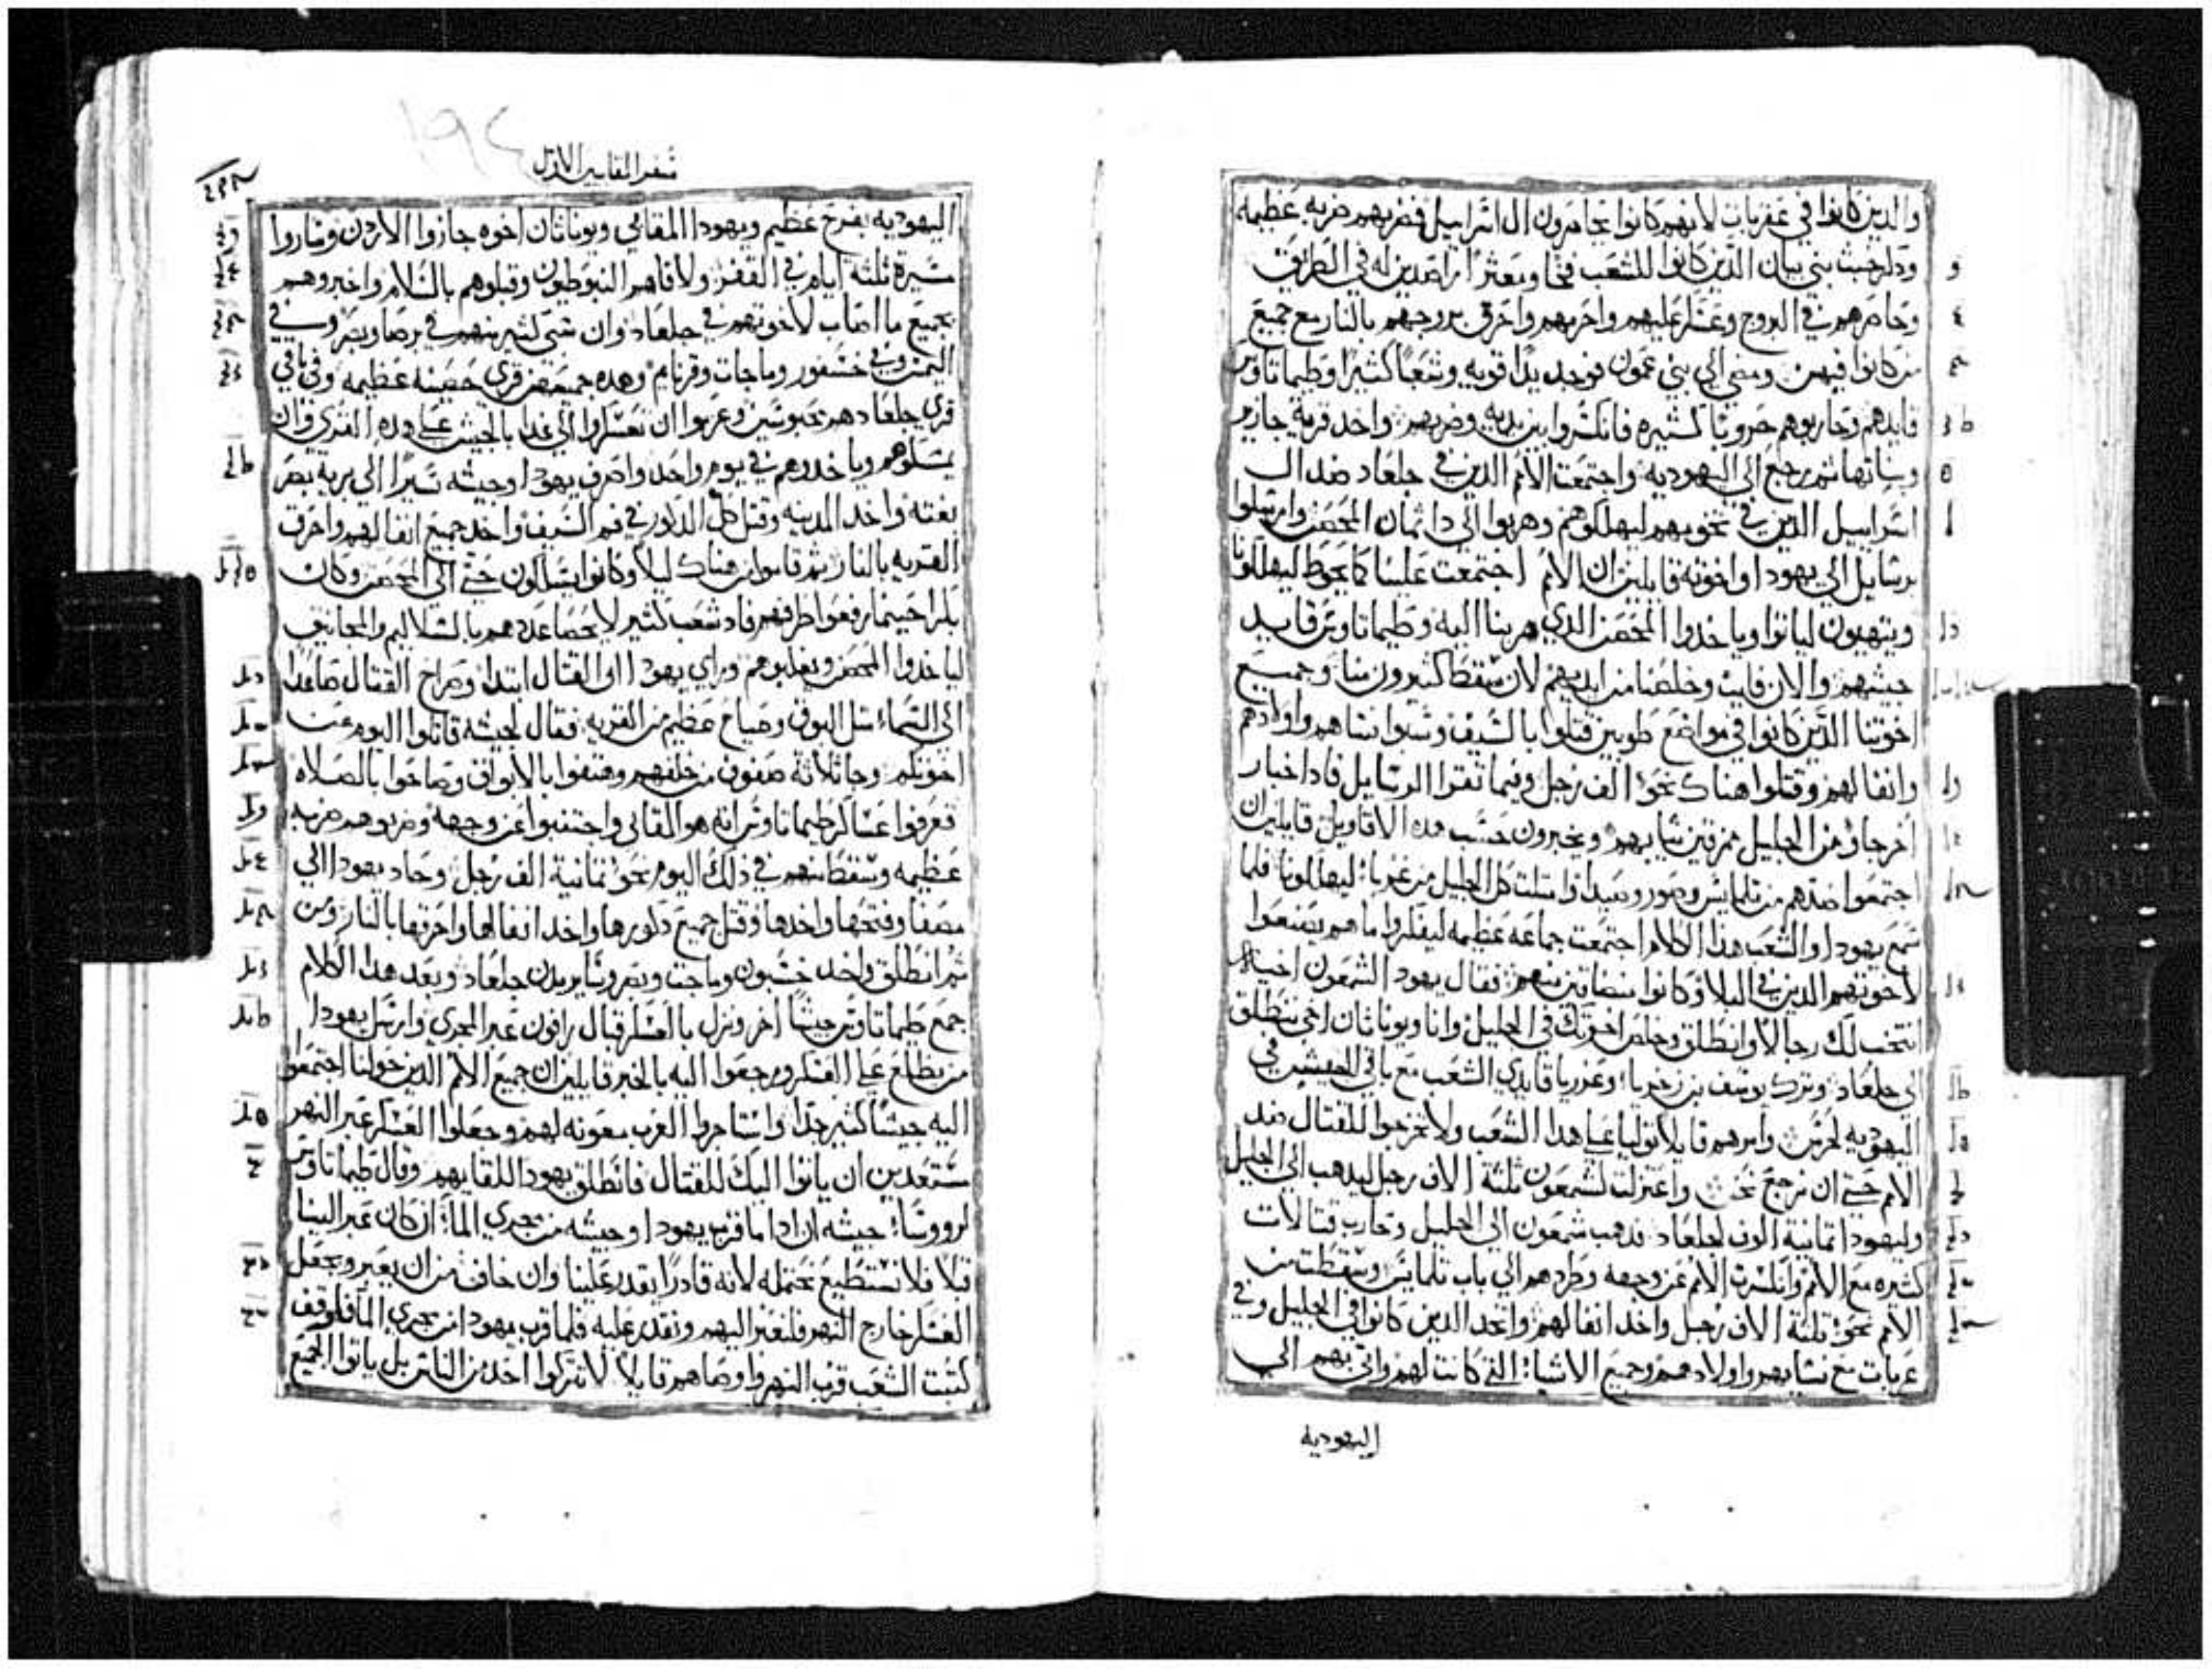 والدين كانوا في عقربات لانهم كانوا يحاصرون ال اسراييل فضربهم ضربه عظيمه
ودكر خبث بني بيان الذين كانوا للشعب فخا ومعثرا راصدين له في الطريق
وحاصرهم في البروج وعسكر عليهم واحرمهم واحرق بروجهم بالنار مع جميع
من كانوا فيهن ومضي الي بني عمون فوجد يدا قويه وشعبا كثيرا وطيماتاوس
قايدهم وحاربوهم حروبا كثيره فانكسروا بين يديه وضربهم واخد قرية جازير
وبناتها ثم رجع الي اليهوديه واجتمعت الامم الدين في جلعاد ضد ال
اسراييل الدين في تخوبهم ليهلكوهم وهربوا الي داثمان المحصن وارسلوا
برسايل الي يهودا واخوته قايلين ان الامم اجتمعت علينا كما يحوط ليهلكونا
ويتهيون لياتوا وياخدوا المحصن الدي هربنا اليه وطيماتاوس قايد
جيشهم والان فايت وخلصنا من ايديهم لان سقط كثيرون منا وجميع
اخوتنا الدين كانوا في مواضع طوبين قتلوا بالسيف وسبوا نساهم واولادهم
وانفالهم وقتلوا هناك نحو الف رجل وفيما تقرا الرسايل فادا اخبار
اخر جاوا من الجليل ممزقين ثيابهم ويخبرون حسب هده الاقاويل قايلين ان
اجتمعوا ضدهم من تلمايس وصور وصيدا وامتلت كل الجليل من غربا ليهلكونا فلما
سمع يهودا والشعب هدا الكلام اجتمعت جماعه عظيمه ليفكروا ما هم يصنعوا
لاخوتهم الدين في البلا وكانوا متضايقين منهم فقال يهودا لشمعون اخيه
انتخب لك رجالا وانطلق وخلص اخوتك في الجليل وانا ويوناثان اخي ننطلق
الي جلعاد وترك يوسف بن زخريا وعزريا قايدي الشعب مع باقي الجيش في
اليهوديه لحرس وامرهم قايلا توليا علي هدا الشعب ولا تخرجوا للقتال ضد
الامم حتي ان نرجع نحن واعتزلت لشمعون ثلثة الاف رجل ليدهب الي الجليل
وليهودا ثمانية الوف لجلعاد فدهب شمعون الي الجليل وحارب قتالات
كثيره مع الامم وانكسرت الامم عن وجهه وطردهم الي باب تلمايس وسقطت من
الامم نحو ثلثة الاف رجل واخد انفالهم واتخد الدين كانوا في الجليل وفي
عربات مع نسايهم واولادهم وجميع الاشيا التي كانت لهم واتي بهم الي
اليهوديه
سفر المقابيين الاول
١٩٤
اليهوديه بفرح عظيم ويهودا المقابي ويوناثان اخوه جازوا الاردن وساروا
مسيرة ثلثه ايام في القفر ولاقاهم النبوطيون وقبلوهم بالسلام واخبروهم
بجميع ما اصاب لاخوتهم في جلعاد وان شي كثير منهم في برصا وبصر وفي
اليمس وفي خسفور وماجات وقرنايم وهده جميعهن قري حصينه عظيمه وفي باقي
قري جلعاد هم محبوسين وعزموا ان يعسكروا الي غدا بالجيش علي هده القري وان
يمسكوهم وياخدوهم في يوم واحد واصرف يهودا وجيشه مسيرا الي بريه بصر
بغته واخد المدينه وقتل كل الدكور في فم السيف واخد جميع انفالهم واحرق
القريه بالنار ثم قاموا من هناك ليلا وكانوا يسلكون حتي الي المحصن وكان
باكرا حينما رفعوا طرفهم فادا شعب كثير لا يحصا عددهم بالسلاليم والمجانيق
لياخدوا المحصن ويغلبوهم وراي يهودا ان القتال ابتدا وصراخ القتال صاعدا
الي السماء مثل البوق وصياح عظيم من القريه فقال لجيشه قاتلوا اليوم عن
اخوتكم وجا ثلاثة صفوف من خلفهم وهتفوا بالابواق وصاخوا بالصلاه
فعرفوا عساكر طيماتاوس انه هو المقابي واجتنبوا عن وجهه وضربوهم ضربه
عظيمه وسقط منهم في ذلك اليوم نحو ثمانية الف رجل وحاد يهودا الي
مصفا وفتحها واخدها وقتل جميع دكورها واخد انفالها واحرقها بالنار ومن
ثم انطلق واخد خسبون وماجت وبصر وساير مدن جلعاد وبعد هدا الكلام
جمع طيماتاوس جيشا اخر ونزل بالعسكر قبال رافون عبر المجري وارسل يهودا
من يطلع علي العسكر ورجعوا اليه بالخبر قايلين ان جميع الامم الدين حولنا اجتمعوا
اليه جيشا كثير جدا واستاجروا العرب معونه لهم وجعلوا العسكر عبر النهر
مستعدين ان ياتوا اليك للقتال فانطلق يهودا للقايهم وقال طيماتاوس
لرووسا جيشه ان ادا ما قرب يهودا وجيشه من مجري الما ان كان عبر الينا
قبلا فلا نستطيع نحتمله لانه قادرا يقدر علينا وان خاف من ان يعبر ويجعل
العسكر خارج النهر فلنعبر اليهم ونقدر عليه فلما قرب يهودا من مجري الما فاوقف
كتبت الشعب قرب النهر واوصاهم قايلا لا تتركوا احد من الناس بل ياتوا الجميع